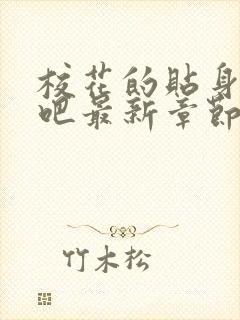 校花的貼身
吧最新章節
竹木松